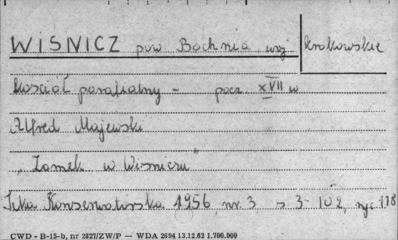 WIŚNICZ pow. Bochnia, woj. krakowskie
kościół parafialny – pocz. XVII w
Alfred Majewski
"Zamek w Wiśniczu"
Teka Konserwatorska 1956, nr. 3 s 3-102, ryc. 178
CWD - B-15-b, nr 2827/ZW/P — WDA 2694 13.12.62 1.700.000